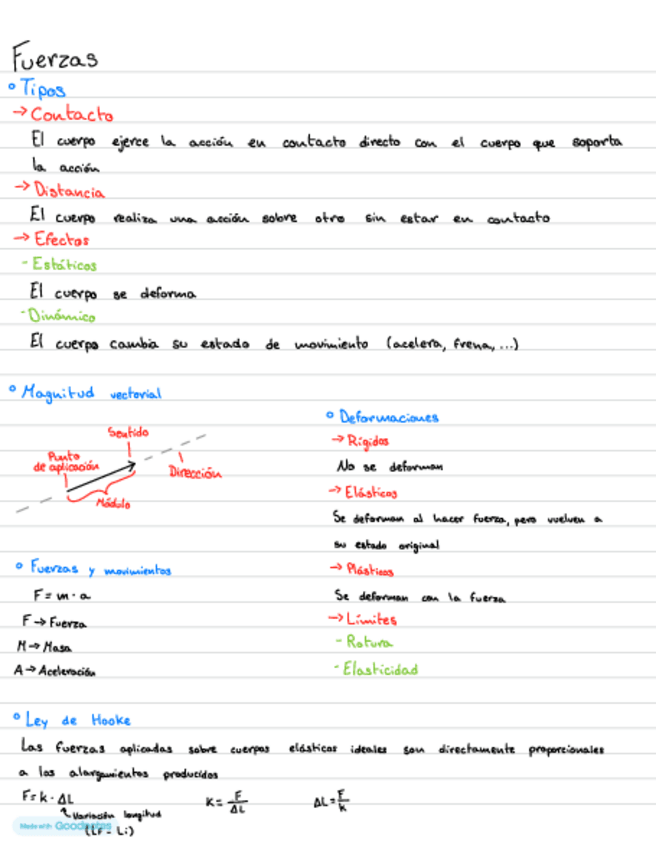 Fuerzas
° Tipos
→ Contacto
El cuerpo ejerce la acción en contacto directo con el cuerpo que soporta
la acción
→ Distancia
El cuerpo realiza una acción sobre otro sin estar en contacto
→ Efectos
- Estáticos
El cuerpo se deforma
- Dinámico
El cuerpo cambia su estado de movimiento (acelera, frena, ...)
° Magnitud vectorial
Sentido
Punto
de aplicación
Dirección
Módulo
° Fuerzas y movimientos
F = m · a
F → Fuerza
M → Masa
A → Aceleración
° Deformaciones
→ Rígidos
No se deforman
→ Elásticos
Se deforman al hacer fuerza, pero vuelven a
su estado original
→ Plásticos
Se deforman con la fuerza
→ Límites
- Rotura
- Elasticidad
° Ley de Hooke
Las fuerzas aplicadas sobre cuerpos elásticos ideales son directamente proporcionales
a los alargamientos producidos
F = k · ΔL
Variación longitud
(LF - Li)
K = F / ΔL
ΔL = F / K
Made with Goodnotes